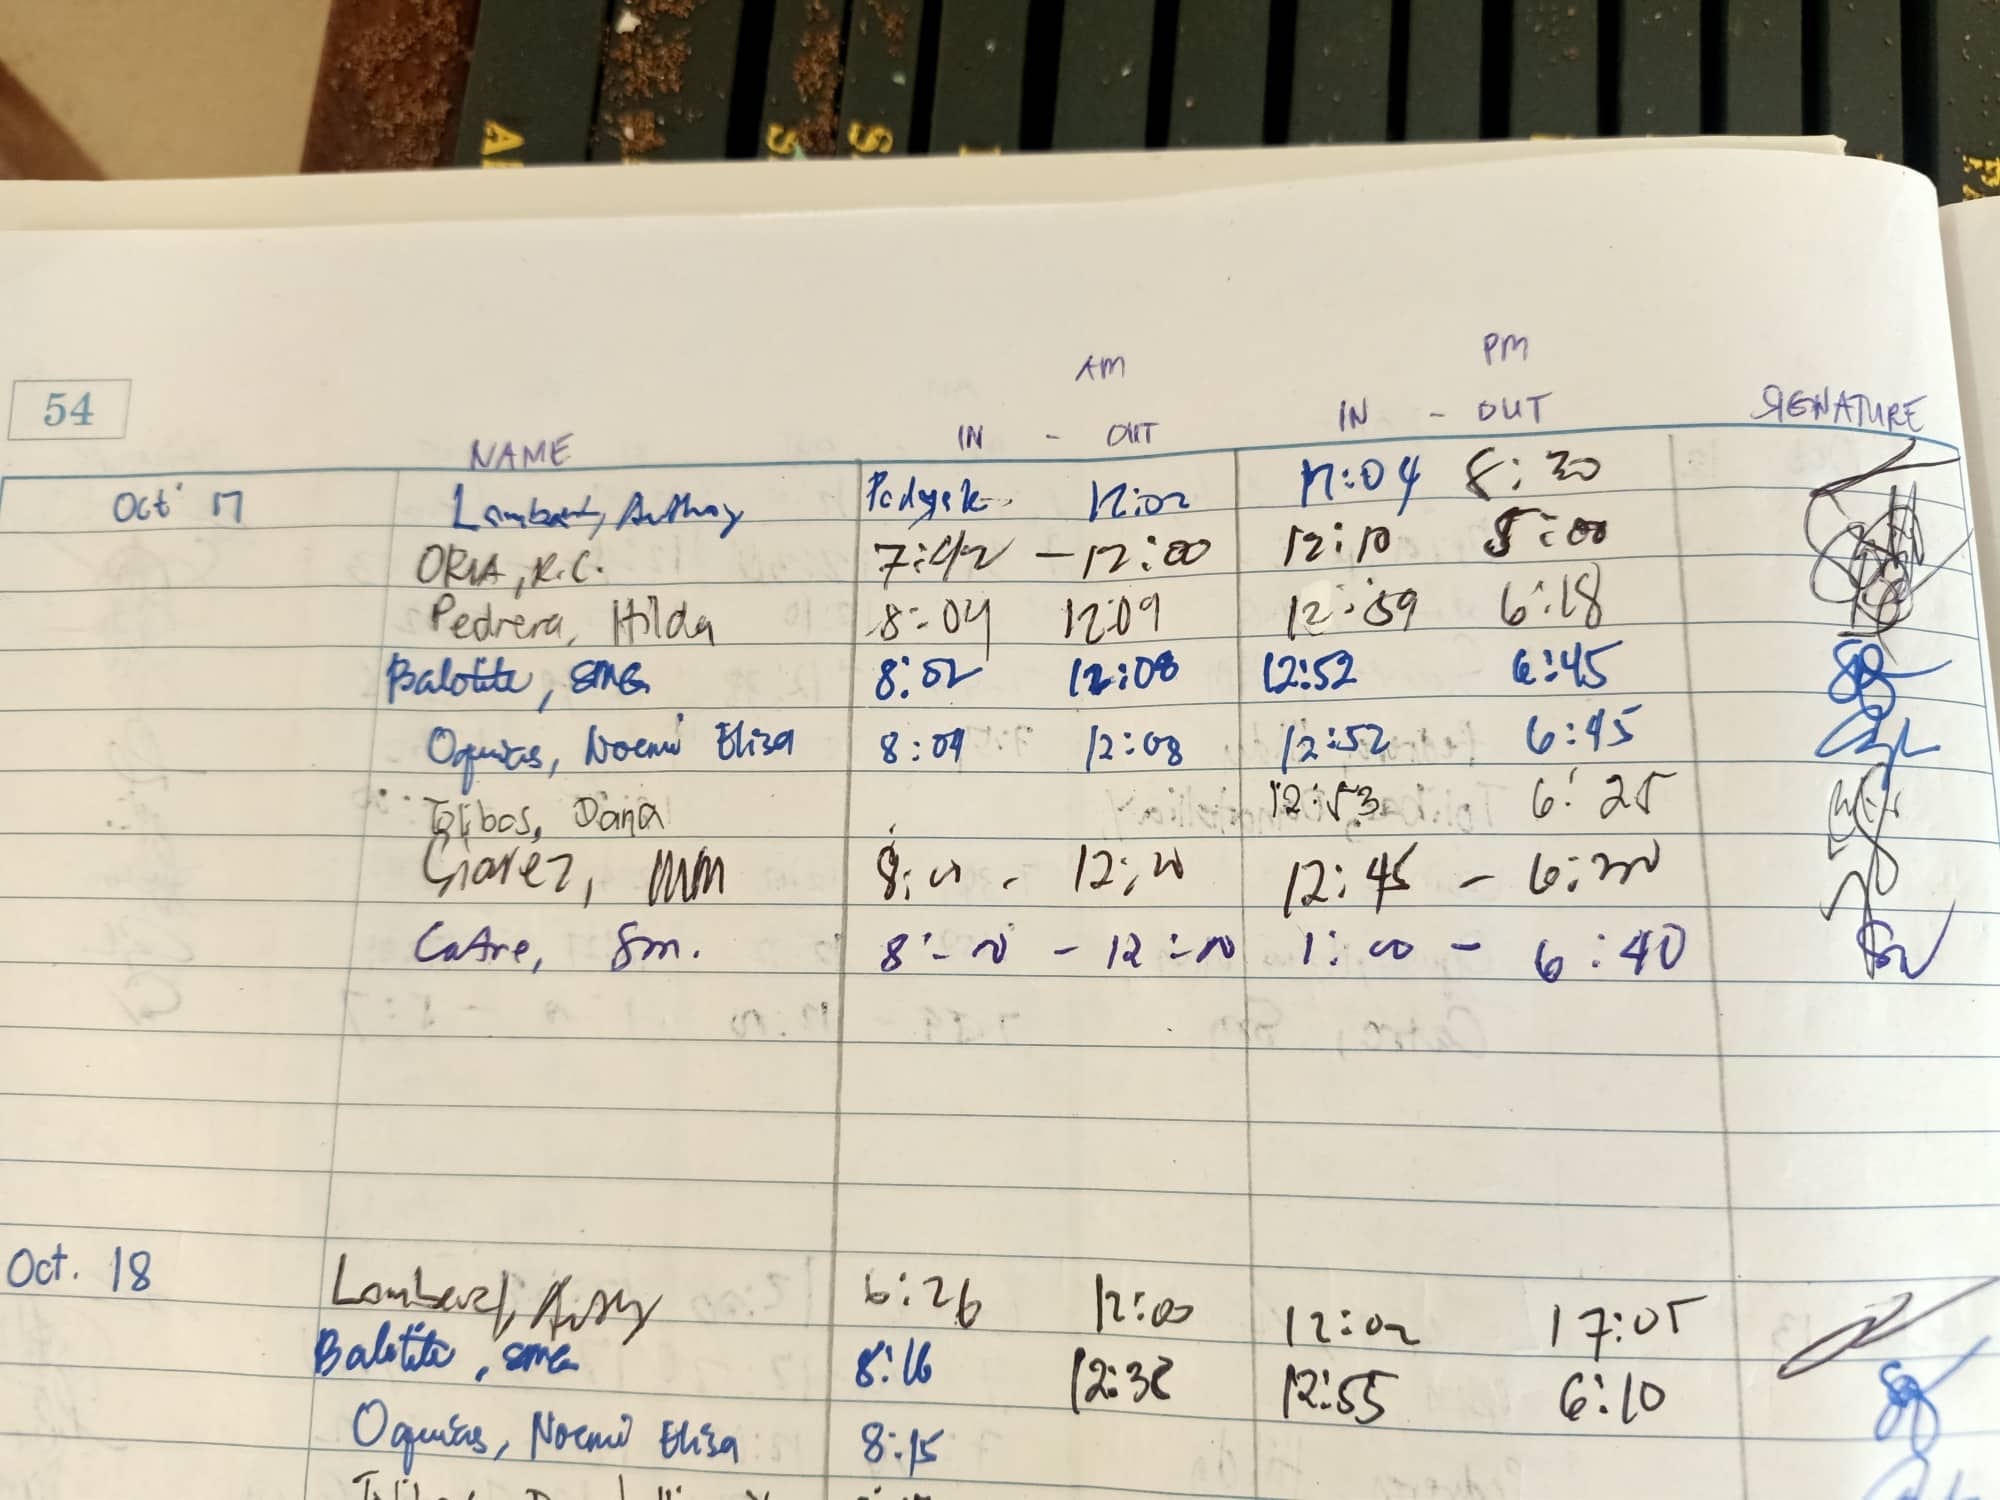 54
AM PM
NAME IN - OUT IN - OUT SIGNATURE
Oct 17 Lambert, Anthony 12:02 12:04 8:30
ORIA, R.C. 7:42 - 12:00 12:10 5:00
Pedrera, Hilda 8:04 12:09 12:59 6:18
Balotite, SMG 8:02 12:08 12:52 6:45
Oquias, Noemi Eliza 8:04 12:08 12:52 6:45
Tolibas, Dana 12:53 6:25
MM 12:45 - 6:30
Catre, Sm. 8:00 - 12:00 1:00 - 6:40
Oct. 18 Lambert, 6:26 12:00 12:02 17:05
Balotite, SMG 8:16 12:38 12:55 6:10
Oquias, Noemi Eliza 8:15